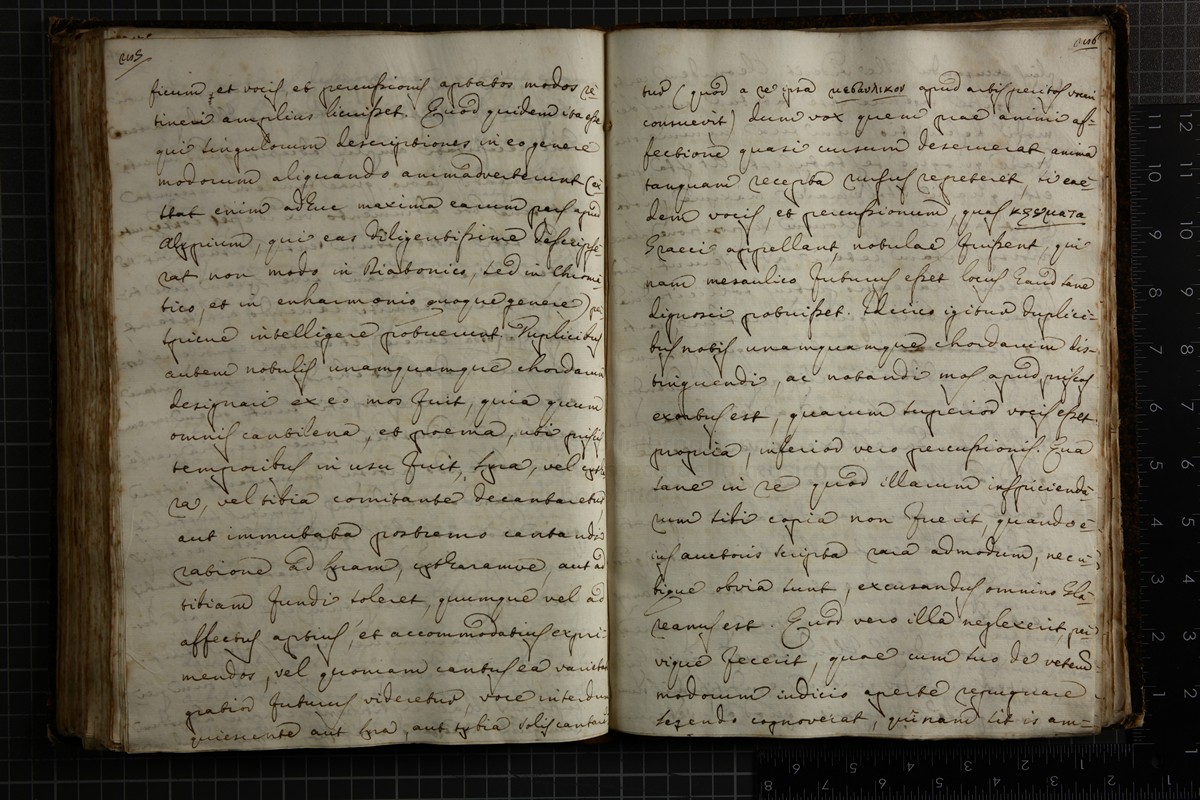 ficum, et vocis, et percussionis aptatos modos re-
tineri amplius licuisset. Quod quidem ita esse
qui singulorum descriptiones in eo genere
modorum aliquando animadverterunt (ex
stat enim adhuc maxima earum pars apud
Alypium, qui eas diligentissime descripse-
rat non modo in Diatonico, sed in Chroma
tico, et in enharmonio quoque genere)
intelligere potuerunt. Duplicibus
autem notulis unamquamque chordarum
designari ex eo mos fuit, quia quum
omnis cantilena, et poema, ubi priscis
temporibus in usu fuit, lyra, vel cytha
ra, vel tibia comitante decantaretur
aut immutata postremo cantandi
ratione ad lyram, cytharamve, aut ad
tibiam fundi soleret, quumque vel ad
affectus aptius, et accommodatius expri-
mendos, vel quoniam cantus ea varietate
gratior futurus videretur, voce interdum
quiescente aut lyra, aut tybia solis cantare-
tur (quod a re ipsa μεσαυλικον apud artis peritos vocari
consuevit) dum vox quem prae animi af-
fectione quasi cursum deseruerat, anima
tanquam recepta rursus repeteret, si eae-
dem vocis, et percussionum, quas κρουματα
Graeci appellant, notulae fuissent, qui
nam mesaulico futurus esset locus haud sane
dignosci potuisset. Idcirco igitur duplici-
bus notis unamquamque chordarum dis-
tinguendi, ac notandi mos apud priscos
exortus est, quarum superior vocis esset
propria, inferior vero percussionis. Qua
sane in re quod illarum inspicienda-
rum sibi copia non fuerit, quando e-
ius auctoris scripta rara admodum, nec u-
bique obvia sunt, excusandus omnino Gla-
reanus est. Quod vero illa neglexerit,
vique fecerit, quae cum suo de veterum
modorum iudicio aperte repugnare
legendo cognoverat, quinam sit is am-